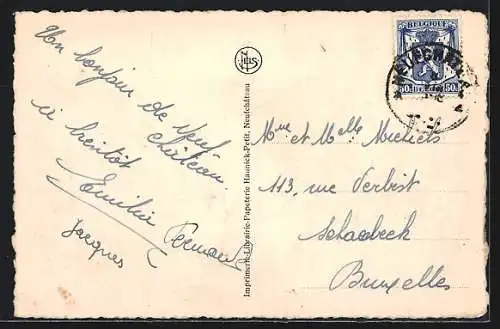 Un bonjour de Neuf-
château
à bientôt
Emilia Fernand
Jacques
NELS
Imprimerie-Librairie-Papeterie Haunick-Petit, Neufchâteau
BELGIQUE-
50c 50c
Mme et Melle Michiels
113, rue Verbist
Schaerbeek
Bruxelles